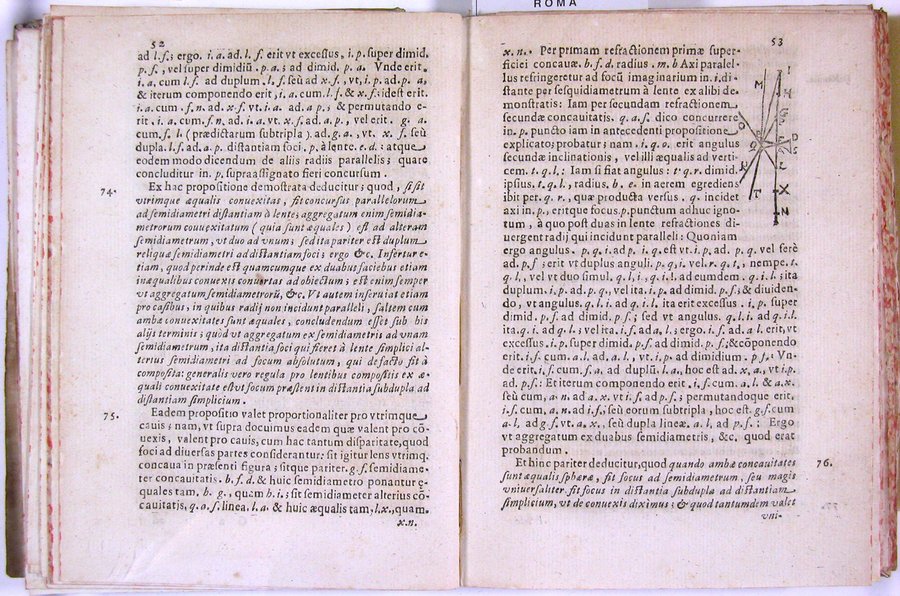 ROMA
52
ad l.f; ergo. i.a. ad. l. f. erit vt excessus, i.p. super dimid.
p.f., vel super dimidiū. p.a; ad dimid. p.a. Vnde erit.
i.a. cum l.f. ad duplum. l.f. seù ad x.f., vt, i.p. ad. p. a,
& iterum componendo erit, i.a. cum. l.f. & x.f: idest erit.
i.a. cum. f.n. ad. x.f. vt. i.a. ad. a p.; & permutando e-
rit. i.a. cum. f.n. ad. i.a. vt. x.f. ad. a p., vel erit. g. a.
cum. f. l. (prædictarum subtripla). ad. g.a., vt. x. f. seù
dupla. l.f. ad. a p. distantiam foci. p. à lente. e.d.: atque
eodem modo dicendum de aliis radiis parallelis; quare
concluditur in p. supra assignato fieri concursum.
74. Ex hac propositione demostrata deducitur; quod, si sit
vtrimque æqualis conuexitas, fit concursus parallelorum
ad semidiametri distantiam à lente; aggregatum enim semidia-
metrorum conuexitatum (quia sunt æquales) est ad alteram
semidiametrum, vt duo ad vnum; sed ita pariter est duplum
reliquæ semidiametri ad distantiam foci; ergo &c. Infertur e-
tiam, quod perinde est quamcumque ex duabus faciebus etiam
inæqualibus conuexis conuertas ad obiectum; est enim semper
vt aggregatum semidiametrorū, &c. Vt autem inseruiat etiam
pro casibus, in quibus radij non incidunt paralleli, saltem cum
ambæ conuexitates sunt æquales, concludendum esset sub his
alijs terminis; quòd vt aggregatum ex semidiametris ad vnam
semidiametrum, ita distantia foci qui fieret à lente simplici al-
terius semidiametri ad focum absolutum, qui de facto fit à
composita: generalis vero regula pro lentibus compositis ex æ-
quali conuexitate est vt focum præstent in distantia subdupla ad
distantiam simplicium.
75. Eadem propositio valet proportionaliter pro vtrimque
cauis; nam, vt supra docuimus eadem quæ valent pro cō-
uexis, valent pro cauis, cum hac tantum disparitate, quod
foci ad diuersas partes considerantur: sit igitur lens vtrimq.
concaua in præsenti figura; sitque pariter. g.f. semidiame-
ter concauitatis. b.f.d. & huic semidiametro ponantur ę-
quales tam. b. g., quam h.i.; sit semidiameter alterius cō-
cauitatis, q.a.s. linea. l.a. & huic æqualis tam, l.x., quam.
x.n.
53
x.n. Per primam refractionem primæ super-
ficiei concauæ. b.f.d. radius. m.b Axi paralel-
lus refringeretur ad focū imaginarium in. i. di-
stante per sesquidiametrum à lente ex alibi de-
monstratis: Iam per secundam refractionem
secundæ concauitatis. q.a.s. dico concurrere
in. p. puncto iam in antecedenti propositione
explicato; probatur; nam. i.q.o. erit angulus
secundæ inclinationis, vel illi æqualis ad verti-
cem. t.q.l.: Iam si fiat angulus: t.q.r. dimid.
ipsius, t.q.l., radius, b.e. in aerem egrediens
ibit per. q.r., quæ producta versus. q. incidet
axi in. p., eritque focus. p. punctum adhuc igno-
tum, à quo post duas in lente refractiones di-
uergent radij qui incidunt paralleli: Quoniam
ergo angulus. p. q.i. ad p. i q. est vt. i p. ad. p q. vel ferè
ad. p.f; erit vt duplus anguli. p.q.i. vel. r.q.t., nempe. t.
q.l., vel vt duo simul. q.l.i, q.i.l. ad eumdem. q.i.l; ita
duplum. i.p. ad. p.q., vel ita. i.p. ad dimid. p.f.; & diuiden-
do, vt angulus. q.l.i. ad q.i.l. ita erit excessus. i.p. super
dimid. p.f. ad dimid. p.f.; sed vt angulus. q.l.i. ad q.i.l.
ita. q.i. ad q.l.; vel ita. i.f. ad a, l.; ergo. i.f. ad. a l. erit, vt
excessus. i.p. super dimid. p.f. ad dimid. p.f.; & cōponendo
erit. i.f. cum. a.l. ad. a.l., vt. i.p. ad dimidium. p.f. Vn-
de erit. i.f. cum. f.a. ad duplū. l.a., hoc est ad. x.a., vt i.p.
ad. p.f.: Et iterum componendo erit. i.f. cum. a.l. & a.x.
seù cum, a.n. ad a.x. vt i.f. ad p.f.; permutandoque erit.
i.f. cum, a.n. ad i.f.; seù eorum subtripla, hoc est. g.f. cum
a.l, ad g.f. vt. a.x., seù dupla lineæ. a.l, ad p.f.: Ergo
vt aggregatum ex duabus semidiametris, &c. quod erat
probandum.
Et hinc pariter deducitur, quod quando ambæ concauitates 76.
sunt æqualis sphæræ, fit focus ad semidiametrum, seu magis
vniuersaliter fit focus in distantia subdupla ad distantiam
simplicium, vt de conuexis diximus; & quod tantumdem valet
vni-